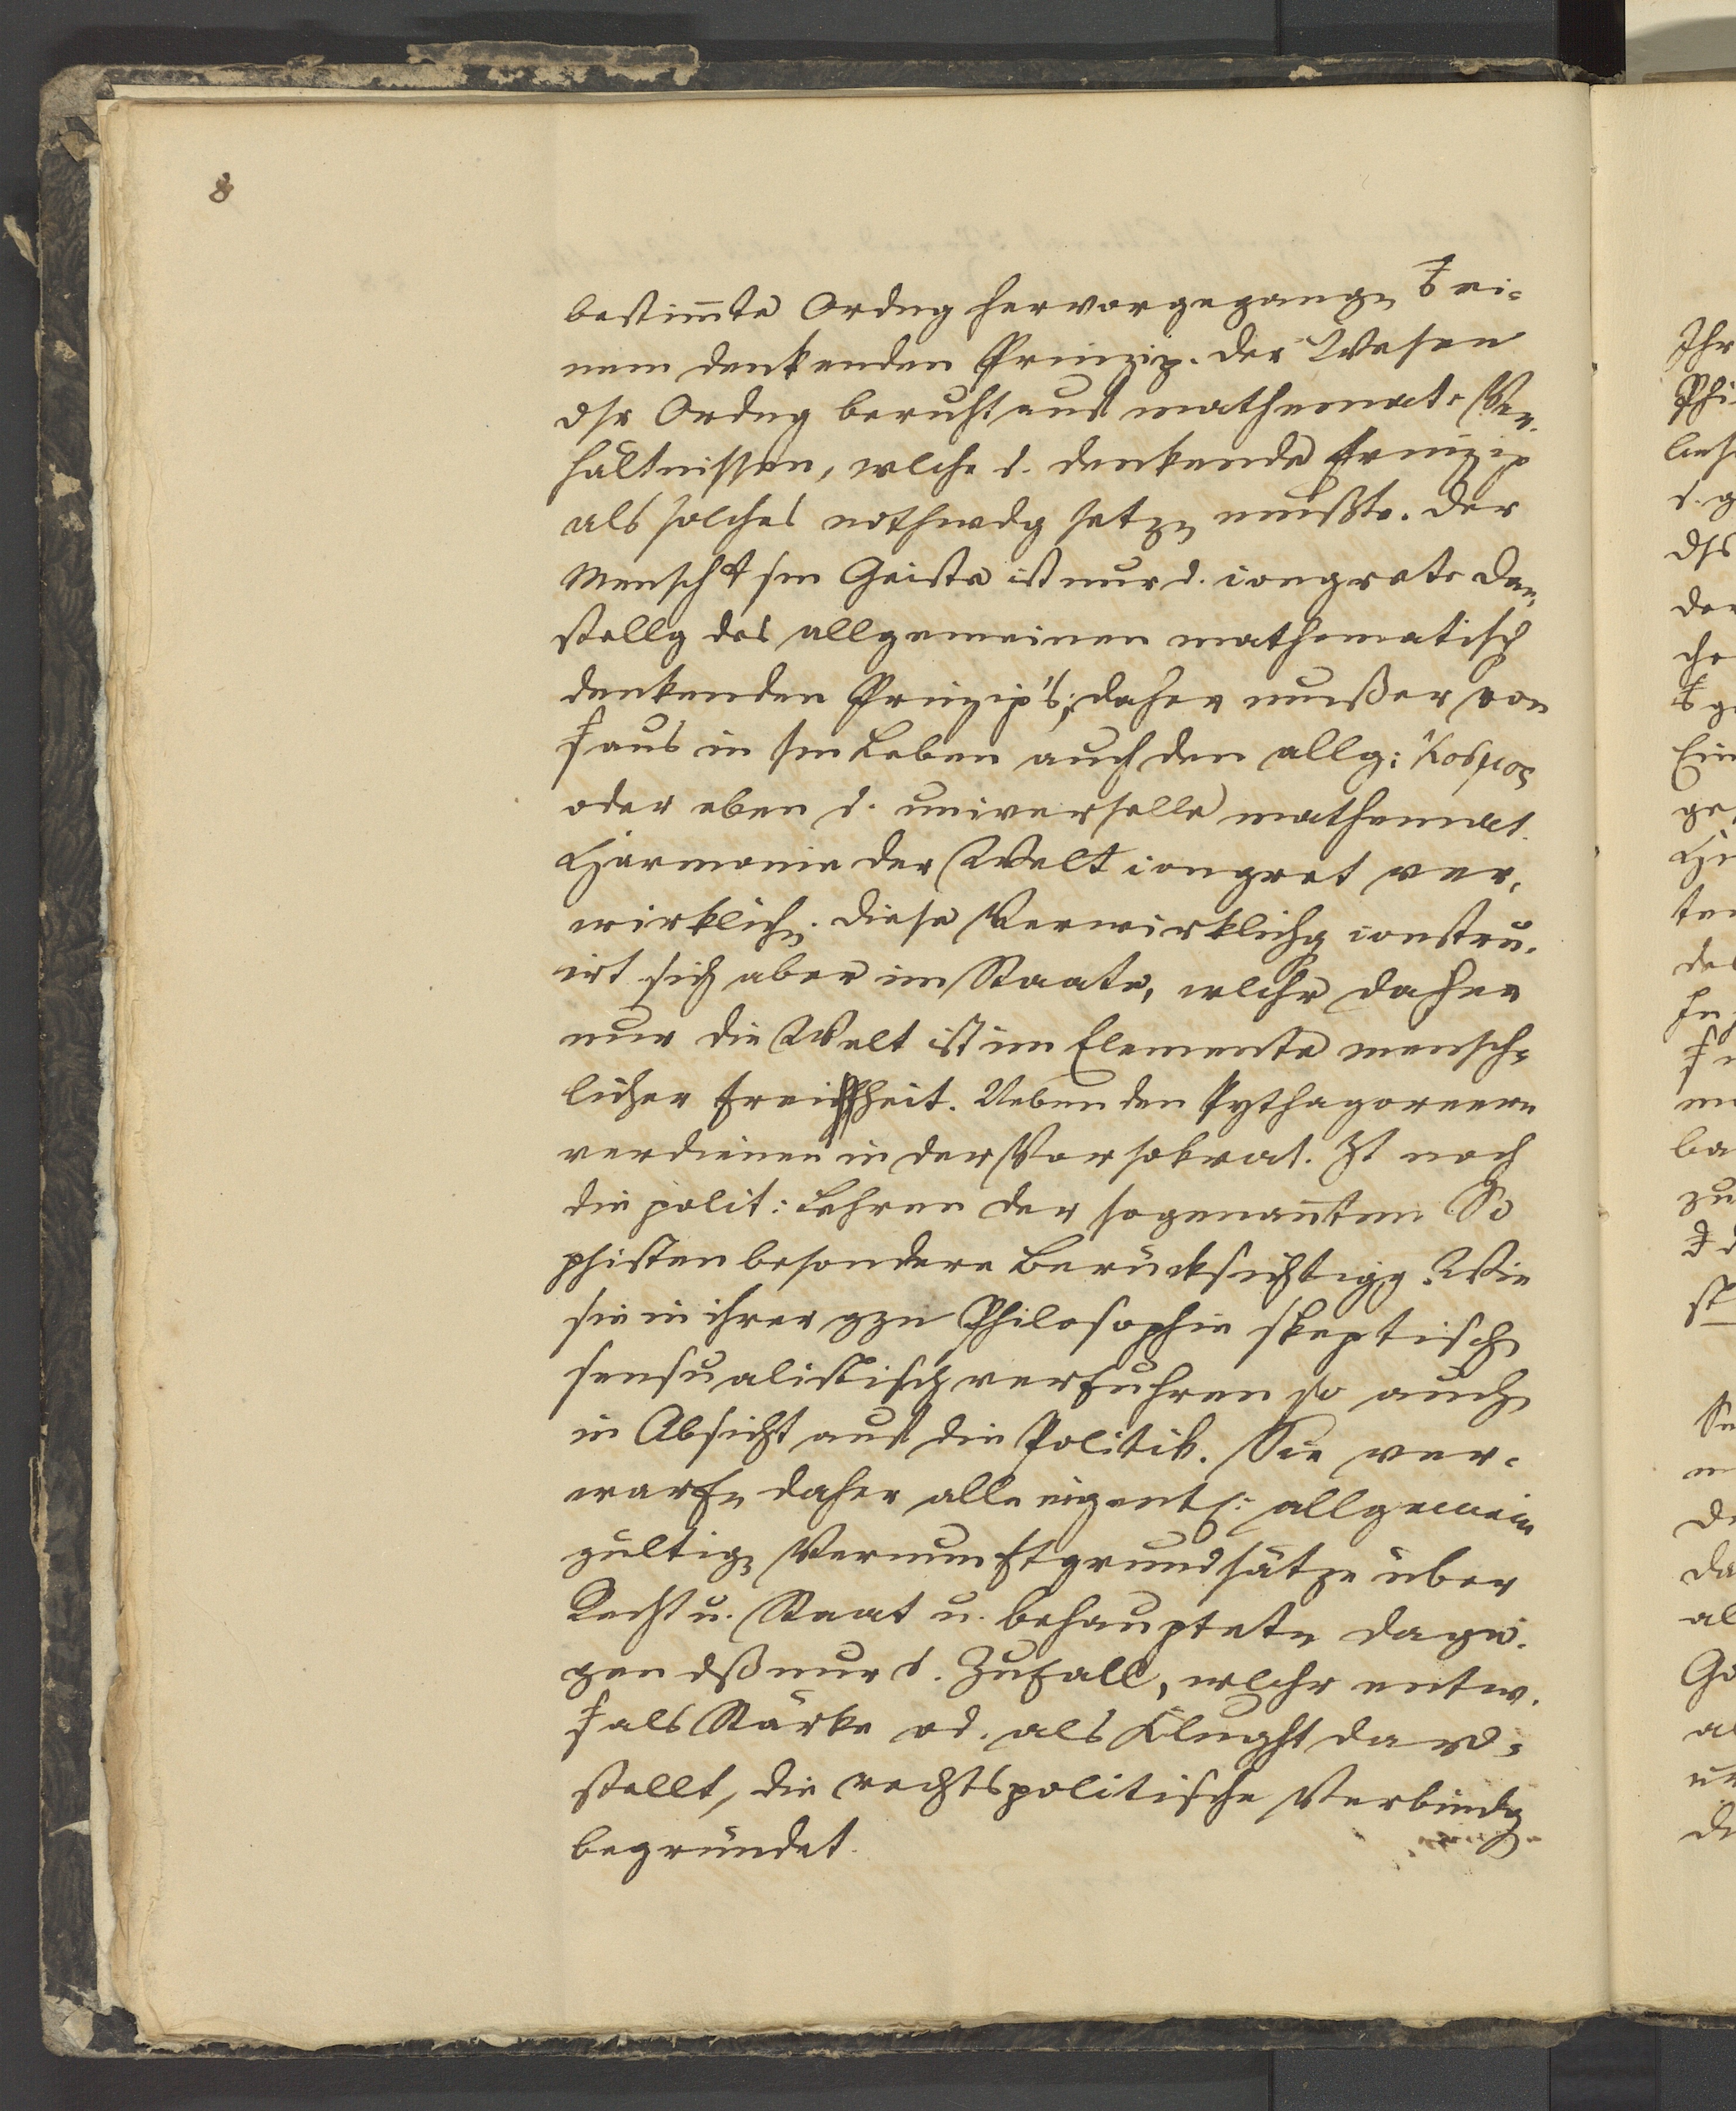 8
bestim̅te Ordng hervorgegangn ei-
nem denkenden Prinzip. Der Wesen
dsr Ordng beruht auf mathemat. Ver-
hältnissen, wlche d. denkende Prinzip
als solches nothwdg setzn mußte. Der
Mensch sm Geiste ist nur d. congrete Dar-
stellg des allgemeinen mathematisch
denkenden Prinzip's; daher muß er von
aus in sm Leben auch den allg: Κοσμος
oder eben d. universelle mathemat.
Harmonie der Welt congret ver-
wirklichn. Diese Verwirklichg constru-
irt sich aber im Staate, wlchr daher
nur die Welt ist im Elemente mensch-
licher Freiheit. Neben den Pythagoreern
verdienen in der Vorsokrat. Zt noch
die polit: Lehren der sogenan̅ten So
phisten besondere Berücksichtigg. Wie
sie in ihrer gzn Philosophie skeptisch
sensualistisch verfuhren so auch
in Absicht auf die Politik. Sie ver-
warfn daher alle eigentl: allgemein
gültign Vernunftgrundsätze über
Recht u. Staat u. behauptetn dage-
gen dß nur d. Zufall, wlchr entw.
als Stärke od. als Klught dar-
stellt, die rechtspolitische Verbindg
begründet.
Ihr
der
zu